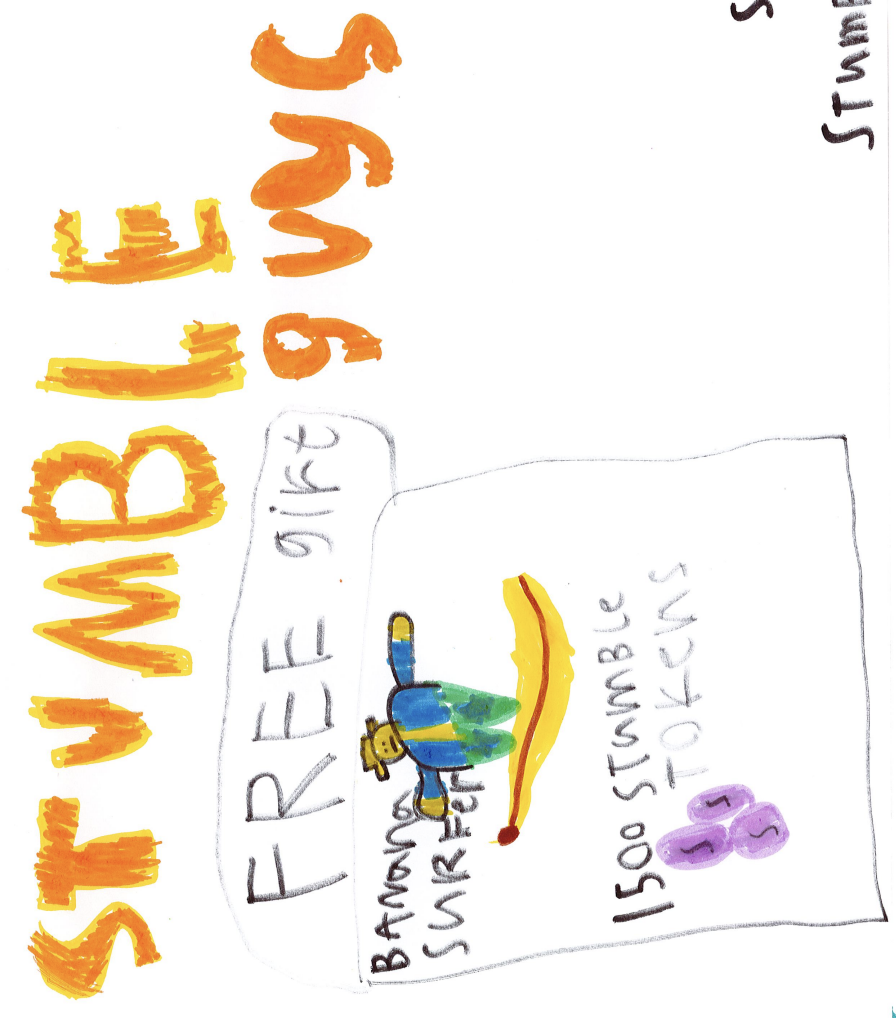 STuMBLE
guys
FREE gift
BANana
SuRFer
1500 STumBLe
TOKens
S
S
S